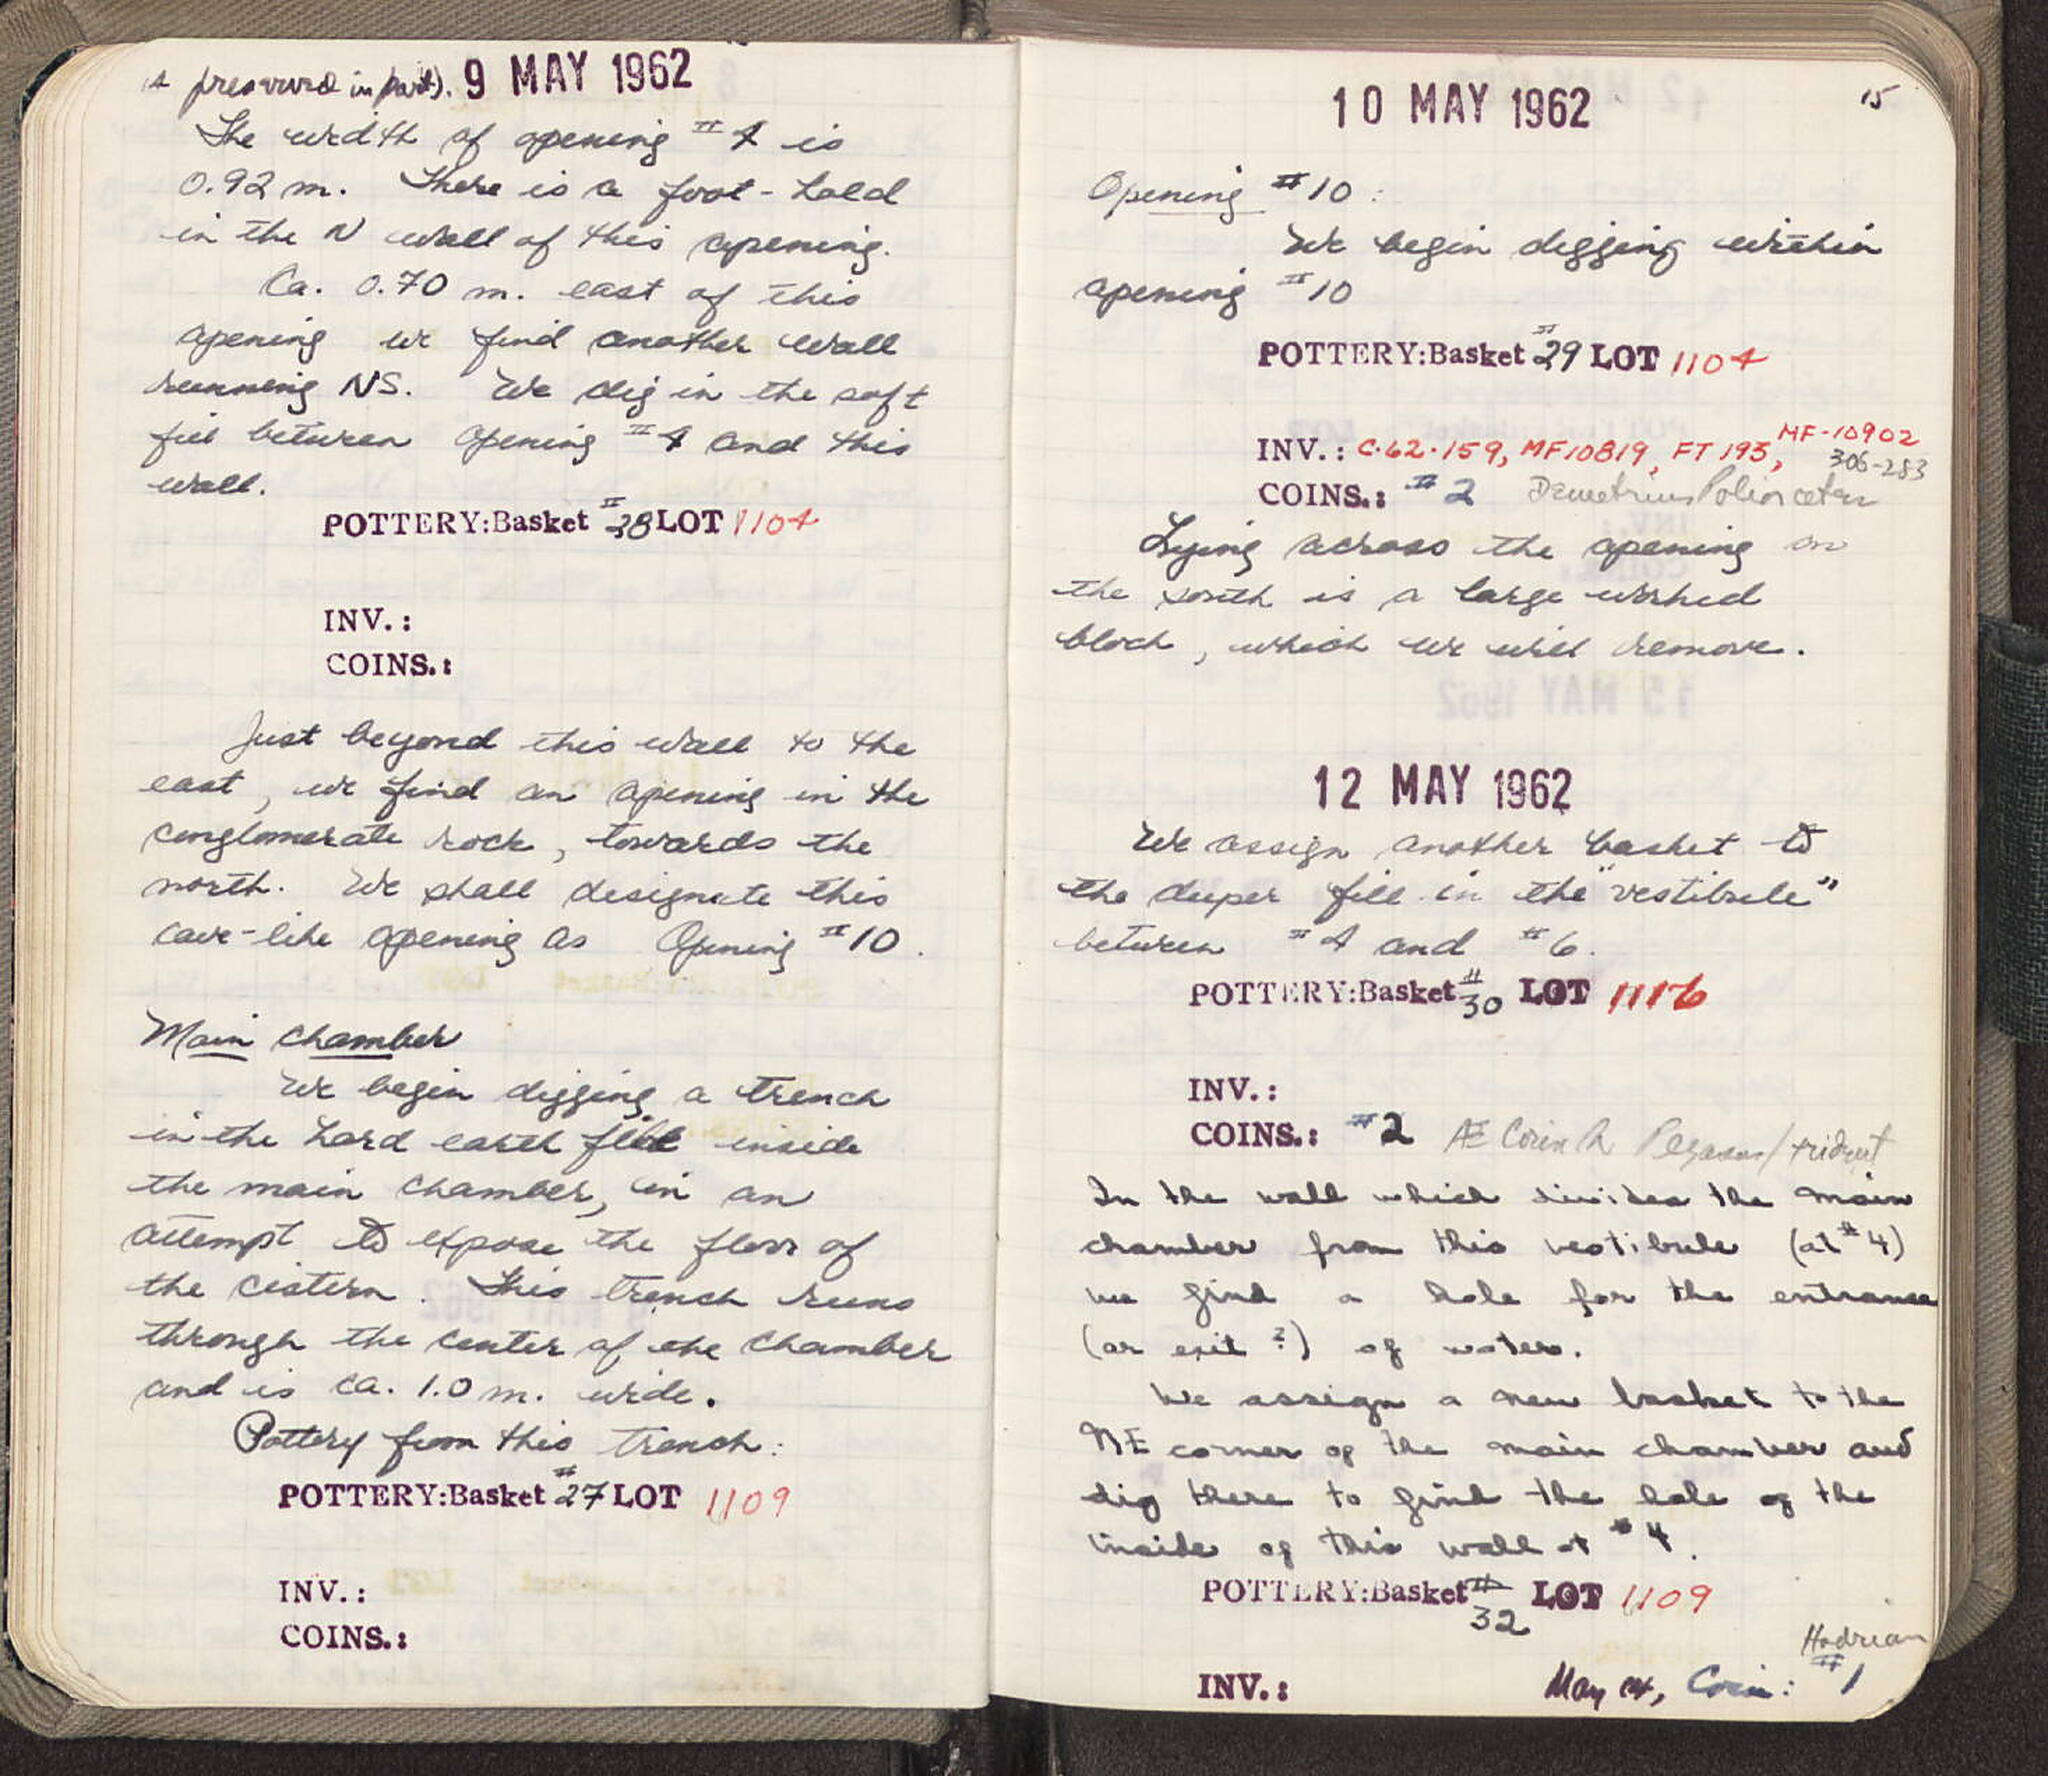 is preserved in part). 9 MAY 1962
The width of opening #4 is
0.92 m. There is a foot-hold
in the N wall of this opening.
Ca. 0.70 m. east of this
opening we find another wall
running NS. We dig in the soft
fill between opening #4 and this
wall.
POTTERY:Basket #28 LOT 1104
INV.:
COINS.:
Just beyond this wall to the
east, we find an opening in the
conglomerate rock, towards the
north. We shall designate this
cave-like opening as Opening #10.
Main chamber
We begin digging a trench
in the hard earth fill inside
the main chamber, in an
attempt to expose the floor of
the cistern. This trench runs
through the center of the chamber
and is ca. 1.0 m. wide.
Pottery from this trench:
POTTERY:Basket #27 LOT 1109
INV.:
COINS.:
15
10 MAY 1962
Opening #10:
We begin digging within
opening #10
POTTERY:Basket #29 LOT 1104
INV.: C-62-159, MF10819, FT 193, MF-10902
306-283
COINS.: #2 Demetrius Poliorcetes
Lying across the opening on
the south is a large worked
block, which we will remove.
12 MAY 1962
We assign another basket to
the deeper fill in the "vestibule"
between #4 and #6.
POTTERY:Basket #30 LOT 1116
INV.:
COINS.: #2 Æ Corinth Pegasus/trident
In the wall which divides the main
chamber from this vestibule (at #4)
we find a hole for the entrance
(or exit?) of waters.
We assign a new basket to the
NE corner of the main chamber and
dig there to find the hole of the
inside of this wall at #4.
POTTERY:Basket #32 LOT 1109
Hadrian
INV.: May 14, Coin: #1